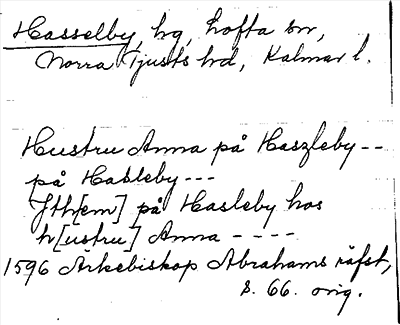 Hasselby, hg, Lofta sn,
Norra Tjusts hd, Kalmar l.
Hustru Anna på Haszleby --
på Hasleby ---
Jth[em] på Hasleby hos
h[ustru] Anna ----
1596 Ärkebiskop Abrahams räfst,
s. 66. orig.